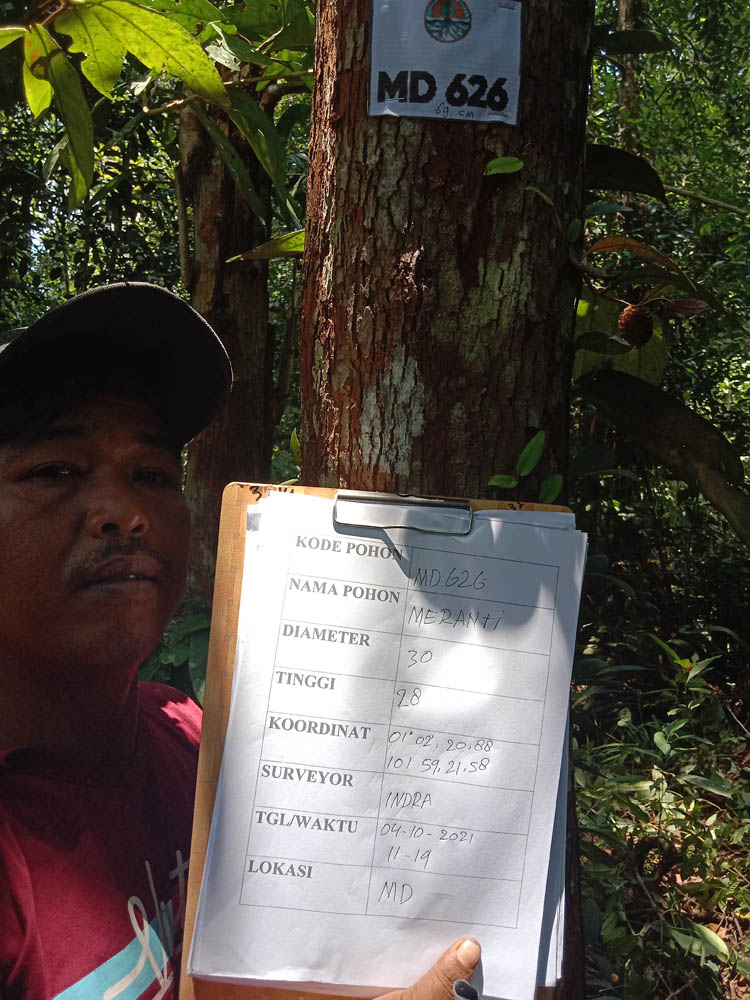 MD 626
69. cm
KODE POHON MD626
NAMA POHON MERANti
DIAMETER 30
TINGGI 28
KOORDINAT 01°02'.20.88
101 59.21.58
SURVEYOR INDRA
TGL/WAKTU 04-10-2021
11-19
LOKASI MD